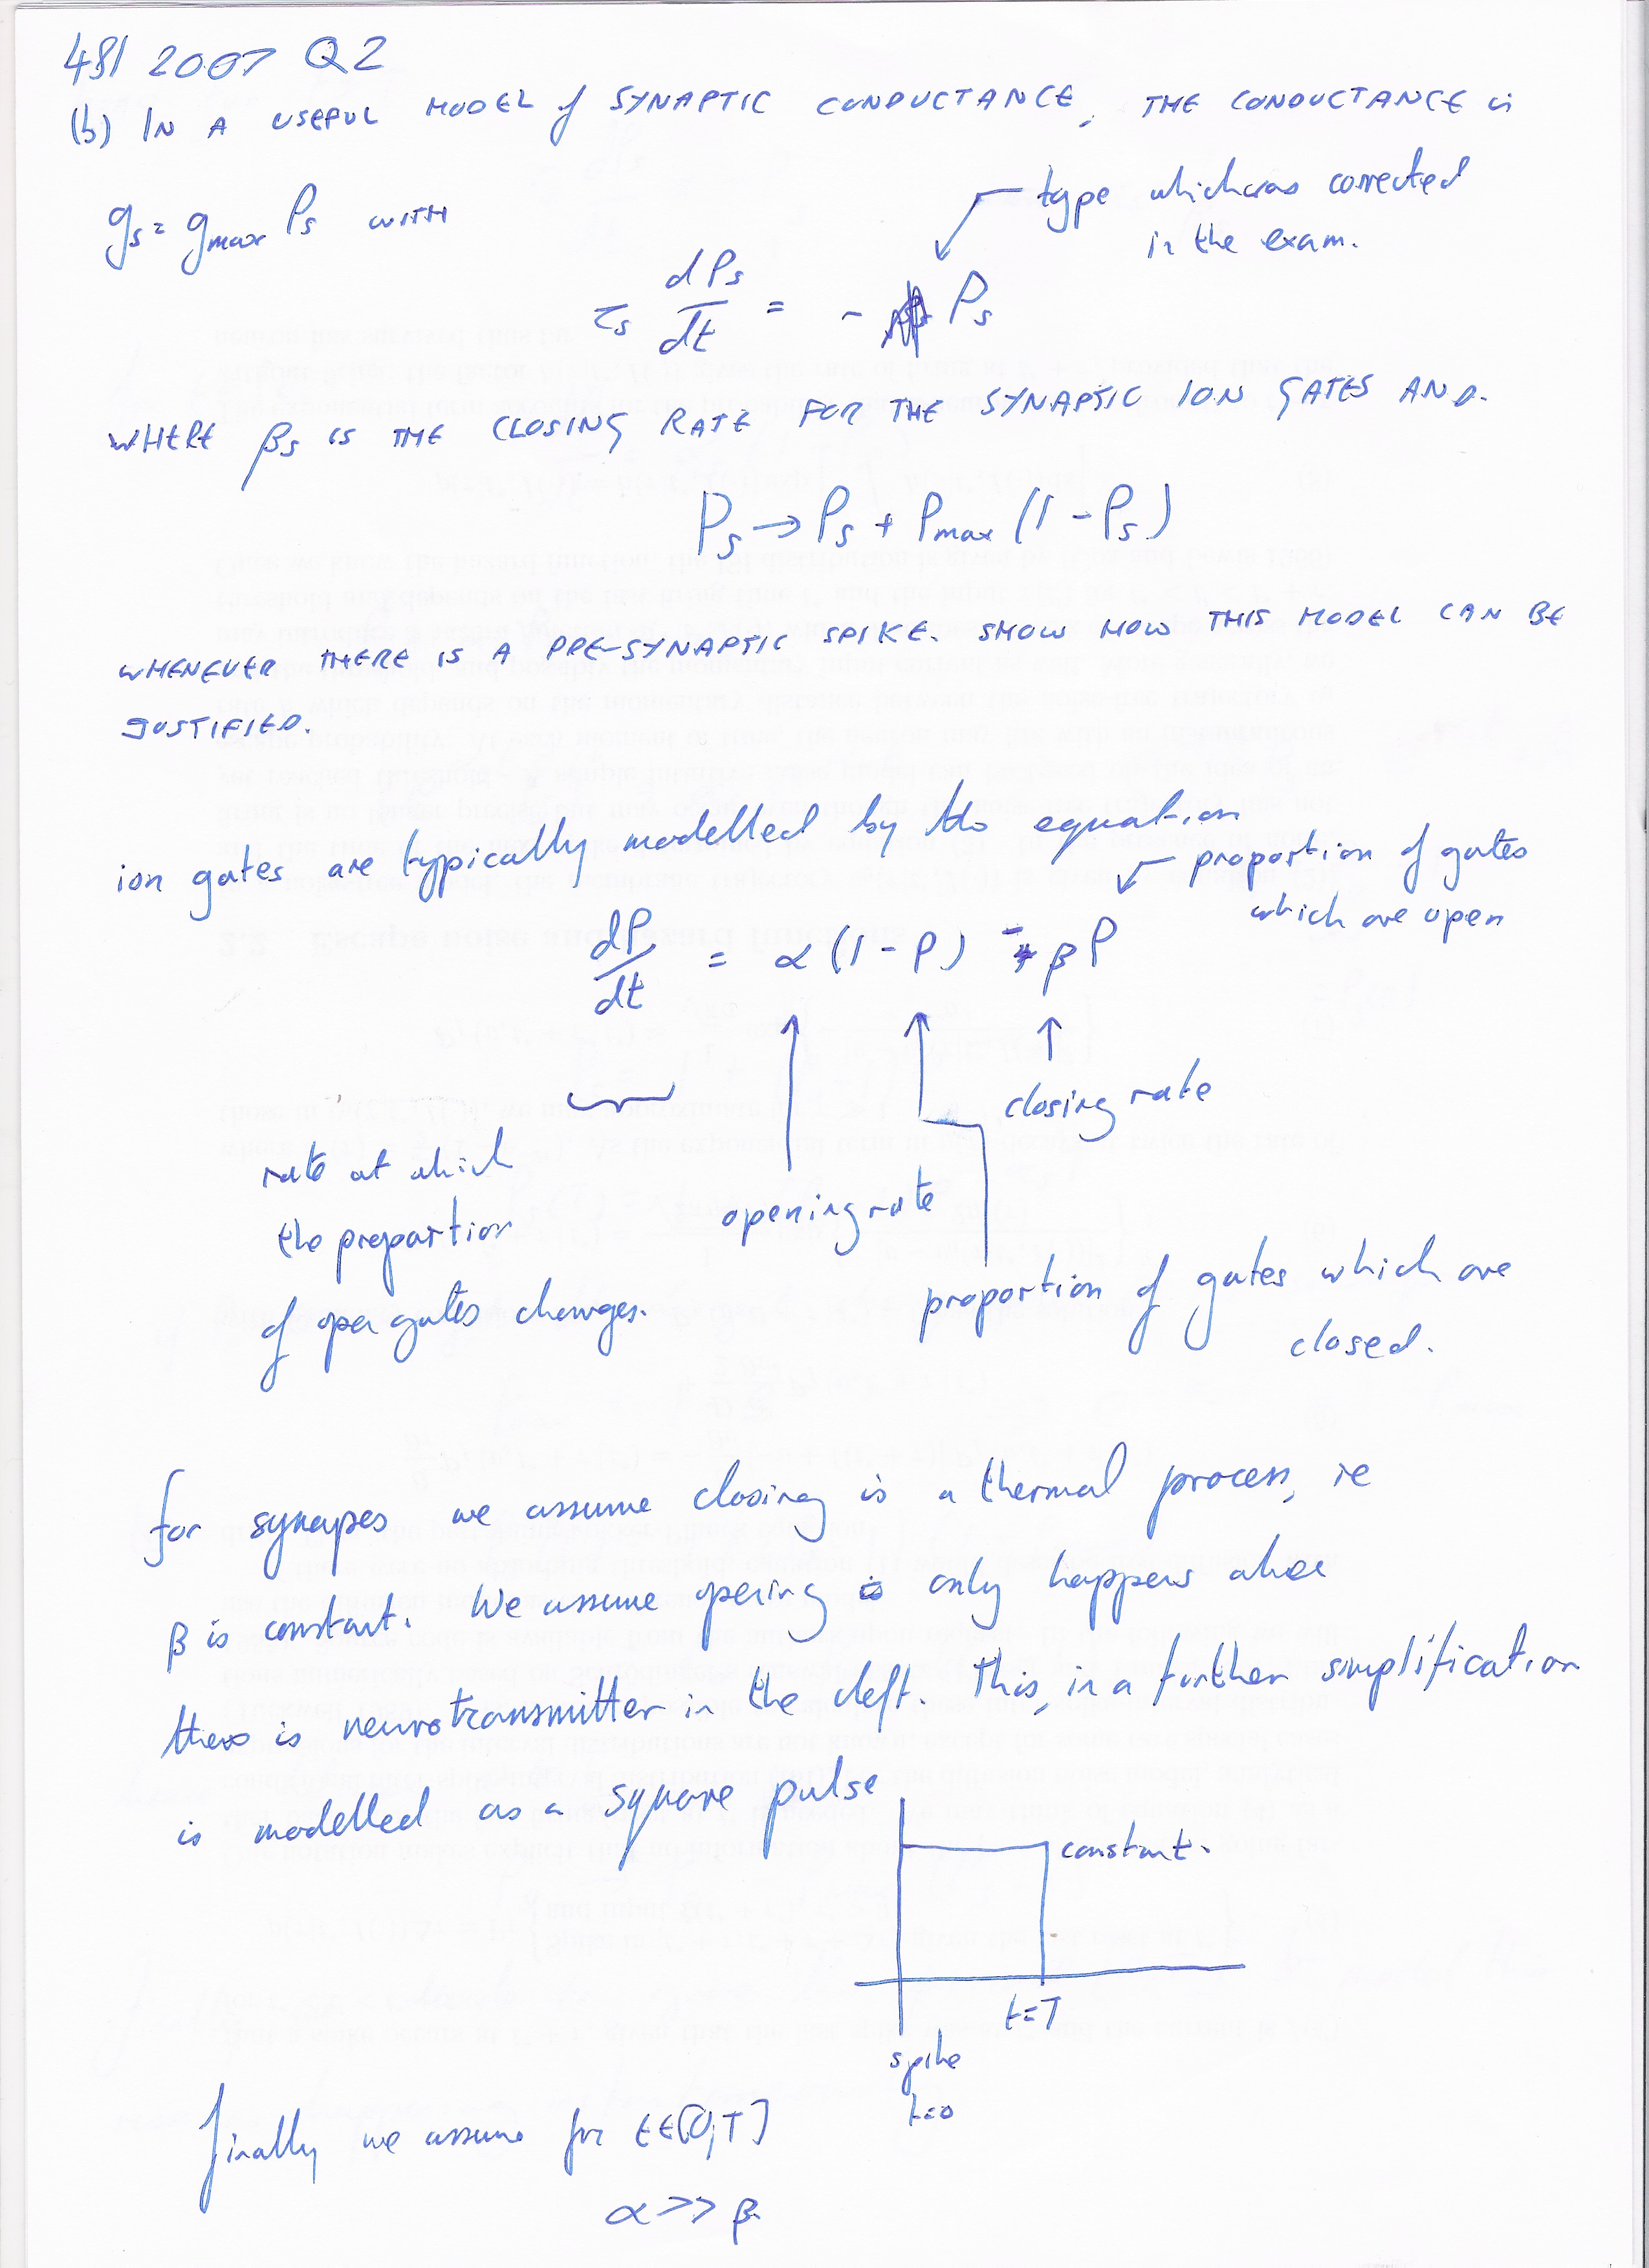 481 2007 Q2
(b) IN A USEFUL MODEL of SYNAPTIC CONDUCTANCE, THE CONDUCTANCE is
type which was corrected
in the exam.
gs = gmax Ps WITH
τs dPs/dt = - Ps
WHERE βs IS THE CLOSING RATE FOR THE SYNAPTIC ION GATES AND.
Ps → Ps + Pmax (1 - Ps)
WHENEVER THERE IS A PRE-SYNAPTIC SPIKE. SHOW HOW THIS MODEL CAN BE
JUSTIFIED.
ion gates are typically modelled by the equation
proportion of gates
which are open
dP/dt = α(1 - P) - βP
closing rate
rate at which
the proportion
of open gates changes.
opening rate
proportion of gates which are
closed.
for synapes we assume closing is a thermal process, ie
β is constant. We assume opening only happens when
there is neurotransmitter in the cleft. This, in a further simplification
is modelled as a square pulse
constant.
t=T
spike
t=0
finally we assume for t∈[0,T]
α >> β